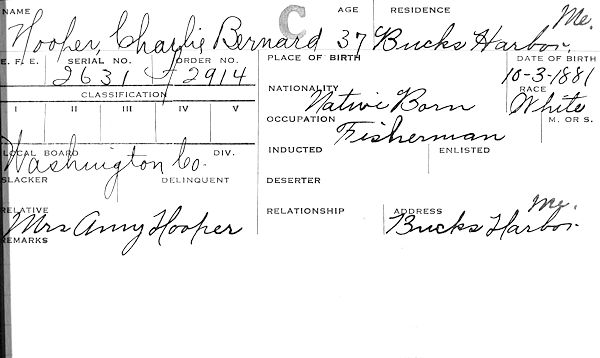 NAME C AGE RESIDENCE Me.
Hooper, Charlie Bernard 37 Bucks Harbor.
E. F. E. SERIAL NO. ORDER NO. PLACE OF BIRTH DATE OF BIRTH
2631 2914 10-3-1881
CLASSIFICATION NATIONALITY RACE
Native Born White
I II III IV V OCCUPATION M. OR S.
Fisherman
LOCAL BOARD DIV. INDUCTED ENLISTED
Washington Co.
SLACKER DELINQUENT DESERTER
RELATIVE RELATIONSHIP ADDRESS Me.
Mrs Amy Hooper Bucks Harbor.
REMARKS